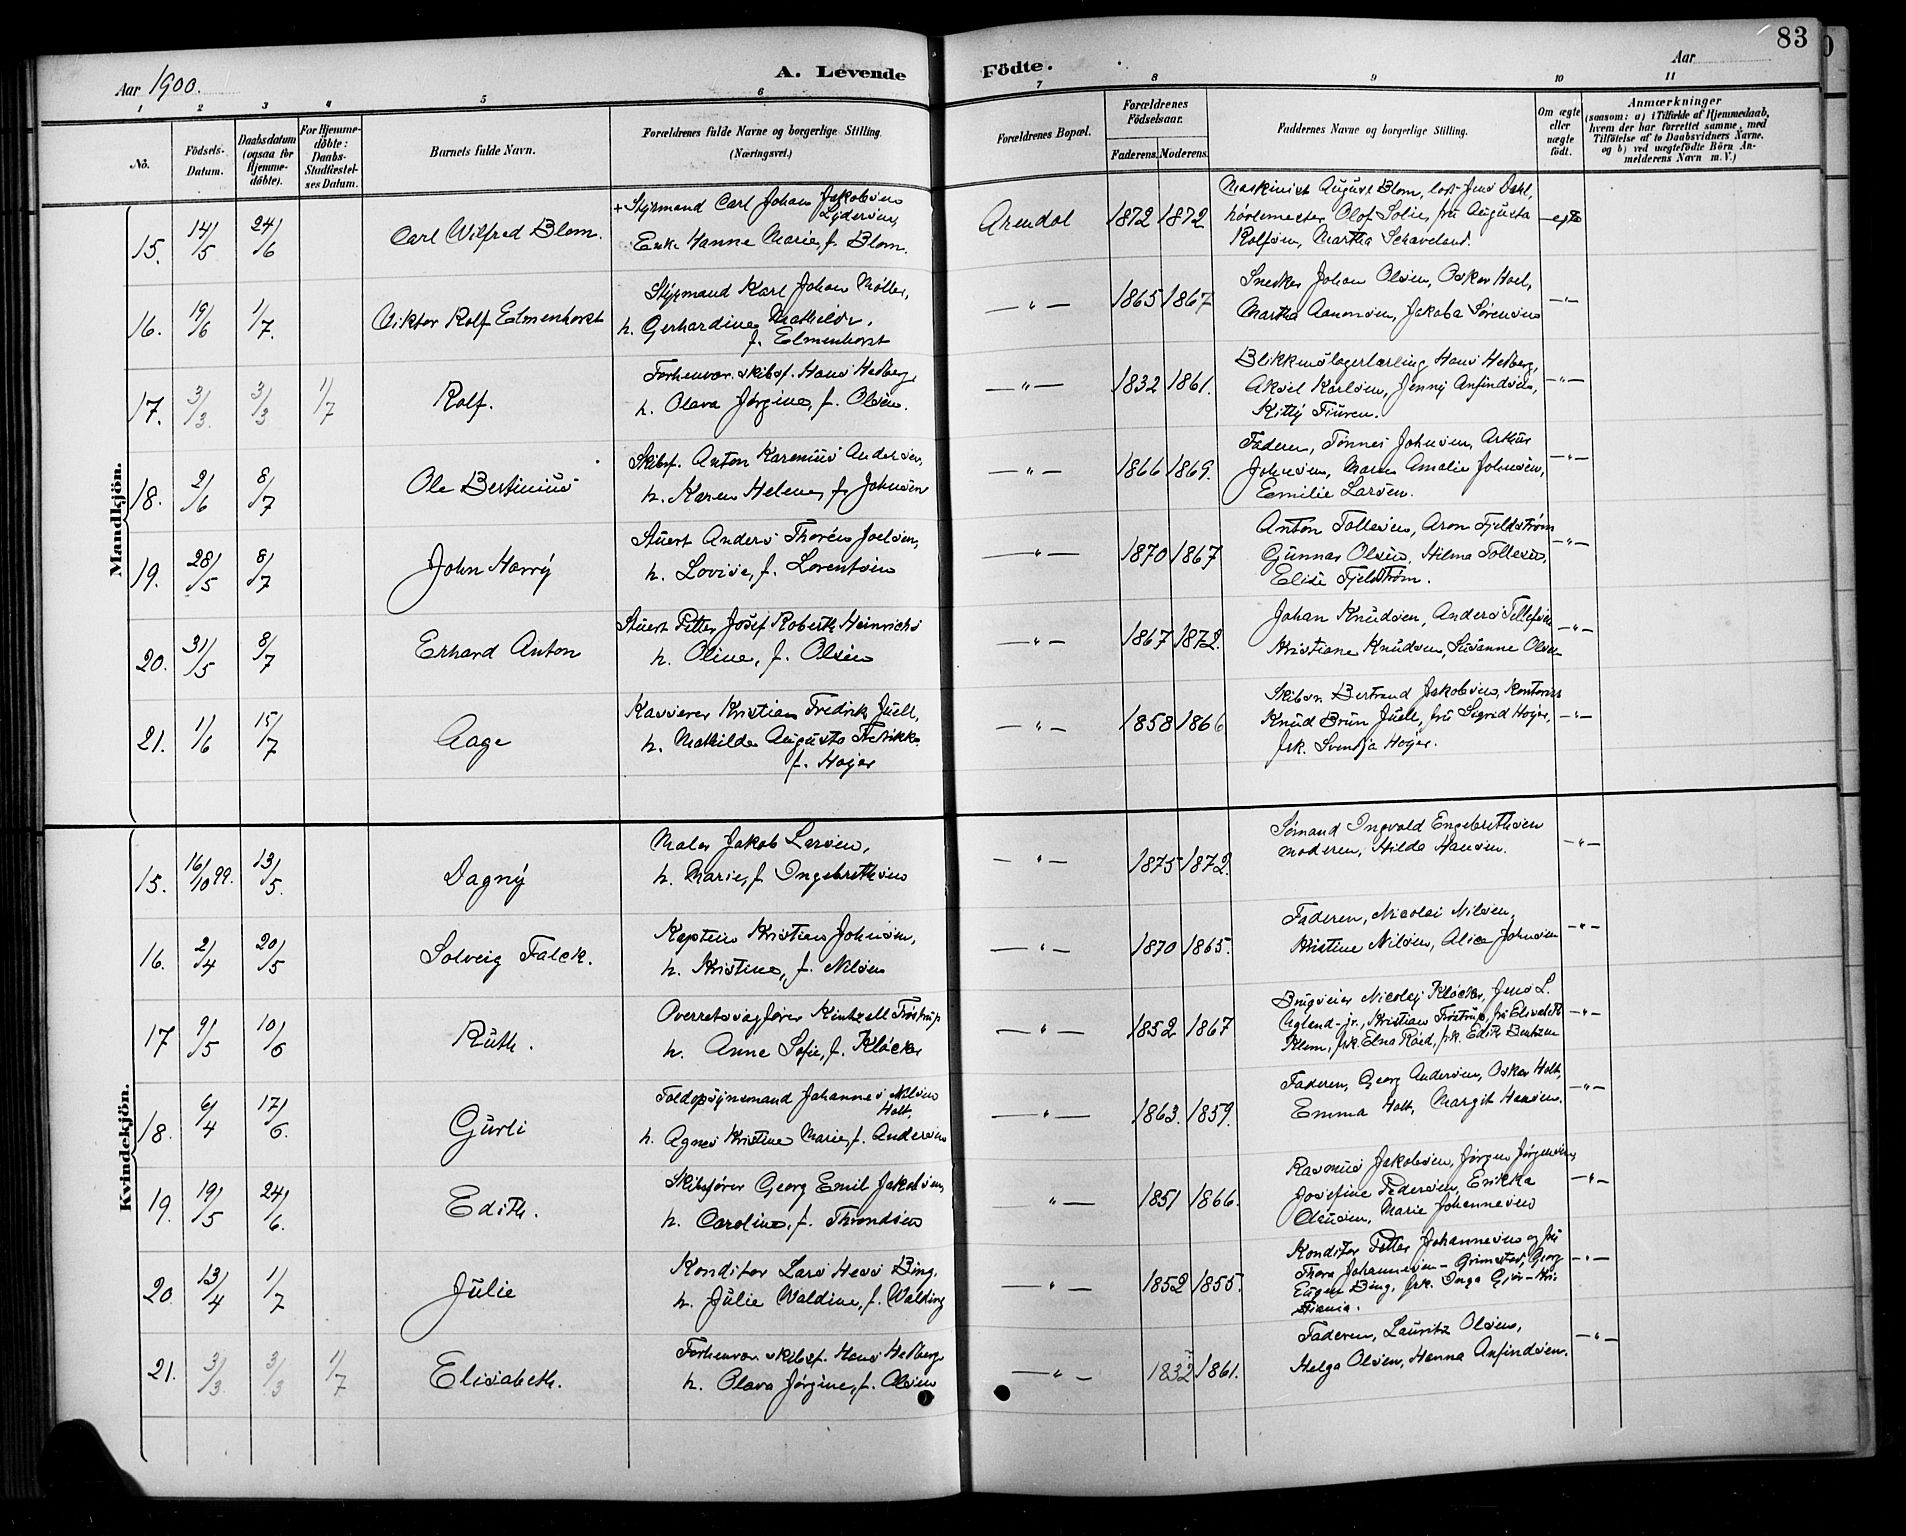 83
Aar 1900.
A. Levende
Födte.
Aar
1 2 3 4 5 6 7 8 9 10 11
No.
Födsels-
Datum.
Daabsdatum
(ogsaa for
Hjemme-
döbte).
For Hjemme-
döbte:
Daabs-
Stadfæstel-
ses Datum.
Barnets fulde Navn.
Forældrenes fulde Navne og borgerlige Stilling.
(Næringsvei.)
Forældrenes Bopæl.
Forældrenes
Födselsaar.
Faderens. Moderens.
Faddernes Navne og borgerlige Stilling.
Om ægte
eller
uægte
födt.
Anmærkninger
(saasom: a) i Tilfælde af Hjemmedaab,
hvem der har forrettet samme, med
Tilföielse af to Daabsvidners Navne.
og b) ved uægtefödte Börn An-
melderens Navn m. V.)
Mandkjön.
15. 14/5 24/6 Carl Wilfred Blom.
+ Styrmand Carl Johan Jakobsen
Lydersen,
Enke Hanne Marie, f. Blom.
Arendal 1872 1872
Maskinist August Blom, lods Jens Dahl,
Olof Solie, fru Augusta
Rolfsen, Martha Schaveland.
egte
16. 19/6 1/7. Viktor Rolf Elmenhorst
Styrmand Karl Johan Møller,
h. Gerhardine Mathilde,
f. Elmenhorst
— " — 1865 1867
Snedker Johan Olsen, Oskar Hoel,
Martha Aanonsen, Jakoba Sørensen
— " —
17. 3/3. 3/3 1/7 Rolf.
Forhenvær. skibsf. Hans Hedberg,
h. Olava Jørgine, f. Olsen.
— " — 1832 1861.
Blikkenslagerlærling Hans Hedberg,
Aksel Karlsen, Jenny Anfindsen,
Kitty Fiuren.
— " —
18. 2/6 8/7 Ole Bertinius
Skibsf. Anton Karenius Andersen,
h. Karen Helene, f. Johnsen
— " — 1866 1869.
Faderen, Tønnes Johnsen, Arthur
Johnsen, Maren Amalie Johnsen,
Emilie Larsen.
— " —
19. 28/5 8/7 John Harry
Stuert Anders Thorén Joelsen,
h. Lovise, f. Lorentsen
— " — 1870 1867
Anton Tollesen, Aron Fjeldstrøm
Gunnar Olsen, Hilma Tollesen,
Elise Fjeldstrøm.
— " —
20. 31/5 8/7 Erhard Anton
Stuert Petter Josef Roberth Heinrichs
h. Oline, f. Olsen
— " — 1867 1872.
Johan Knudsen, Anders Tellefsen
Kristiane Knudsen, Susanne Olsen
— " —
21. 1/6 15/7 Aage
Kasserer Kristian Fredrik Juell,
h. Mathilde Augusta Fredrikke
f. Høyer
— " — 1858 1866
Skibsr. Bertrand Jakobsen, Kontorist
Knud Brun Juell, fru Sigrid Høyer,
frk. Svendsa Høyer.
— " —
Kvindekjön.
15. 16/10 99. 13/5. Dagny
Maler Jakob Larsen,
h. Marie, f. Ingebrethsen
— " — 1875 1872.
Sømand Ingvald Engebrethsen
moderen, Hilda Hansen.
— " —
16. 2/4 20/5 Solveig Falck.
Kaptein Kristian Johnsen,
h. Kristine, f. Nilsen
— " — 1870 1865.
Faderen, Nicolai Nilsen,
Kristine Nilsen, Alice Johnsen
— " —
17 9/5 10/6 Ruth.
Overretssagfører Kintzell Frøstrup
h. Anne Sofie, f. Kløcker
— " — 1852 1867
Brugseier Nicoley Kløcker, Jens L.
Ugland jr., Kristian Frøstrup, fru Elisabeth
Klem, frk. Elna Röed, frk. Edith Bentzen
— " —
18. 6/4 17/6. Gurli
Toldopsynsmand Johannes Nilsen
Holt,
h. Agnes Kristine Marie, f. Andersen
— " — 1863. 1859.
Faderen, Georg Andersen, Oskar Holt,
Emma Holt, Margit Hansen.
— " —
19. 19/5 24/6. Edith.
Skibsfører Georg Emil Jakobsen,
h. Caroline, f. Throndsen
" — 1851 1866.
Rasmus Jakobsen, Jørgen Jørgensen,
Josefine Pedersen, Erikka
Olausen, Marie Johannesen
— " —
20 13/4 1/7 Julie
Konditor Lars Hess Bing,
h. Julie Waldine, f. Walding
— " — 1852 1855.
Konditor Petter Johannesen og fru
Thora Johannesen - Grimstad, Georg
Eugen Bing, frk. Inga Gjør - Kri-
stiania.
— " —
21. 3/3 3/3 1/7 Elisabeth.
Forhenvær. skibsf. Hans Hedberg
h. Olava Jørgine, f. Olsen
— " — 1832 1861.
Faderen, Lauritz Olsen,
Helga Olsen, Hanna Anfindsen.
— " —